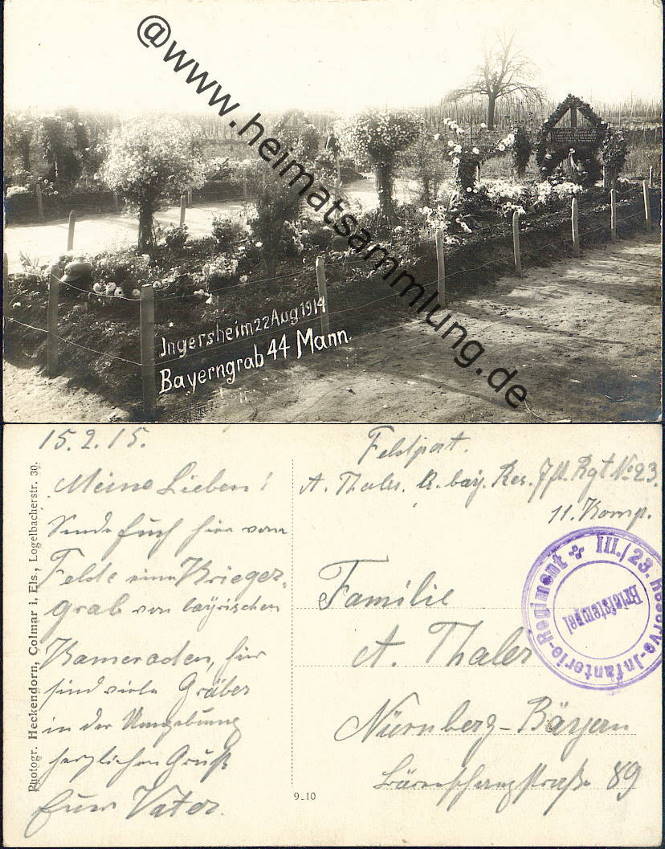 @www.heimatsammlung.de
Ingersheim 22 Aug. 1914
Bayerngrab 44 Mann.
15.2.15.
Meine Lieben!
Sende Euch hier vom
Felde eine Krieger-
grab von bayrischen
Kameraden, hier
sind viele Gräber
in der Umgebung
herzlichen Gruß
Euer Vater.
Photogr. Heckendorn, Colmar i. Els., Logelbacherstr. 30.
9-10
Feldpost.
A. Thaler. bay. Res. Inf. Rgt. No 23.
11. Komp.
Familie
A. Thaler
Nürnberg-Bayern
Bärenschanzstraße 89
III./23. Reserve-Infanterie-Regiment
Briefstempel